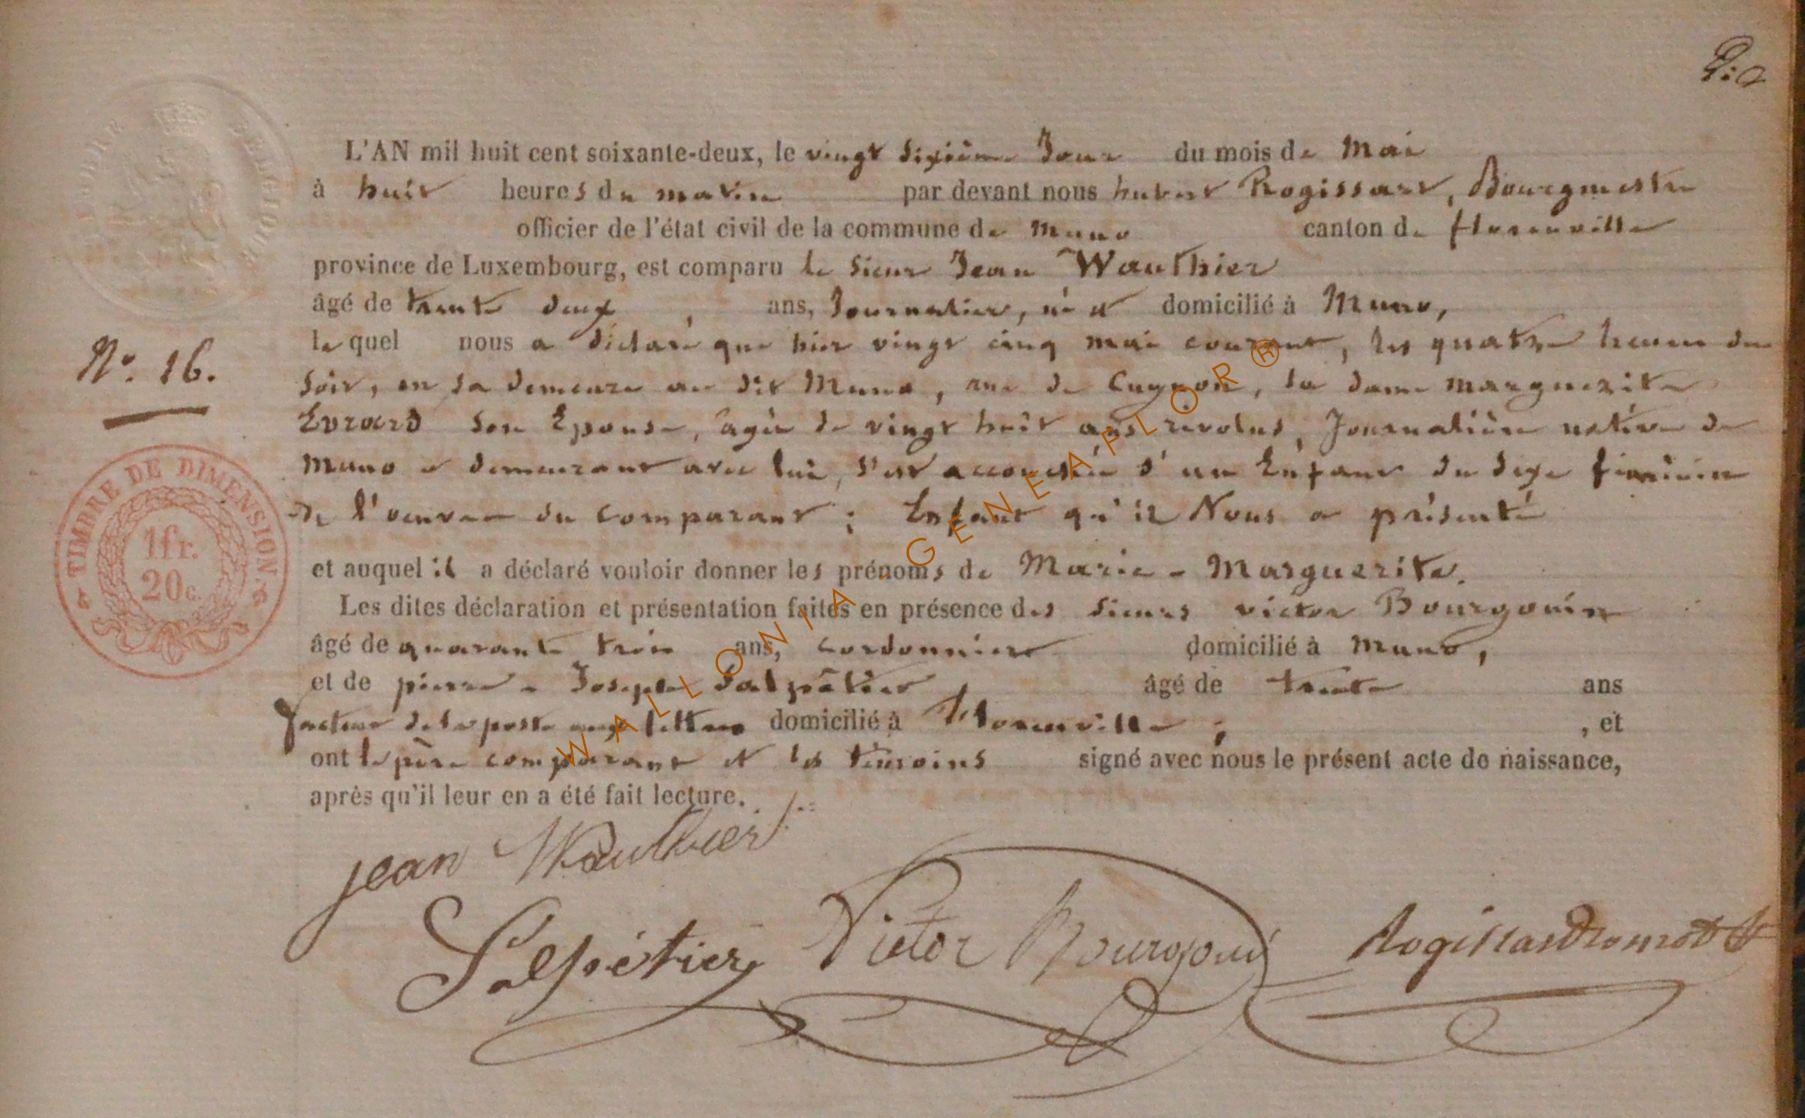 L'AN mil huit cent soixante-deux, le vingt sixième Jour du mois de Mai
à huit heures du matin par devant nous hubert Rogissart, Bourgmestre
officier de l'état civil de la commune de Muno canton de florenville
province de Luxembourg, est comparu le sieur Jean Wauthier
âgé de trente deux, ans, Journalier, né et domicilié à Muno,
N°. 16.
lequel nous a déclaré que hier vingt cinq mai courant, les quatre heures du
soir, en sa demeure au dit Muno, rue de Cugnon, la dame marguerite
Evrard son Epouse, âgée de vingt huit ans révolus, Journalière native de
Muno et demeurant avec lui, s'est accouchée d'un Enfant du sexe féminin
de l'oeuvre du comparant ; Enfant qu'il Nous a présenté
et auquel il a déclaré vouloir donner les prénoms de Marie - Marguerite.
Les dites déclaration et présentation faites en présence des sieurs victor Bourgouin
âgé de quarante trois ans, cordonnier domicilié à Muno,
et de pierre - Joseph Salpêtier âgé de trente ans
facteur de la poste aux lettres domicilié à Florenville ; , et
ont le père comparant et les témoins signé avec nous le présent acte de naissance,
après qu'il leur en a été fait lecture.
TIMBRE DE DIMENSION.
1fr.
20c.
WALLONIA GENEAPLOR®
jean Wauthier
Salpétier Victor Bourgouin